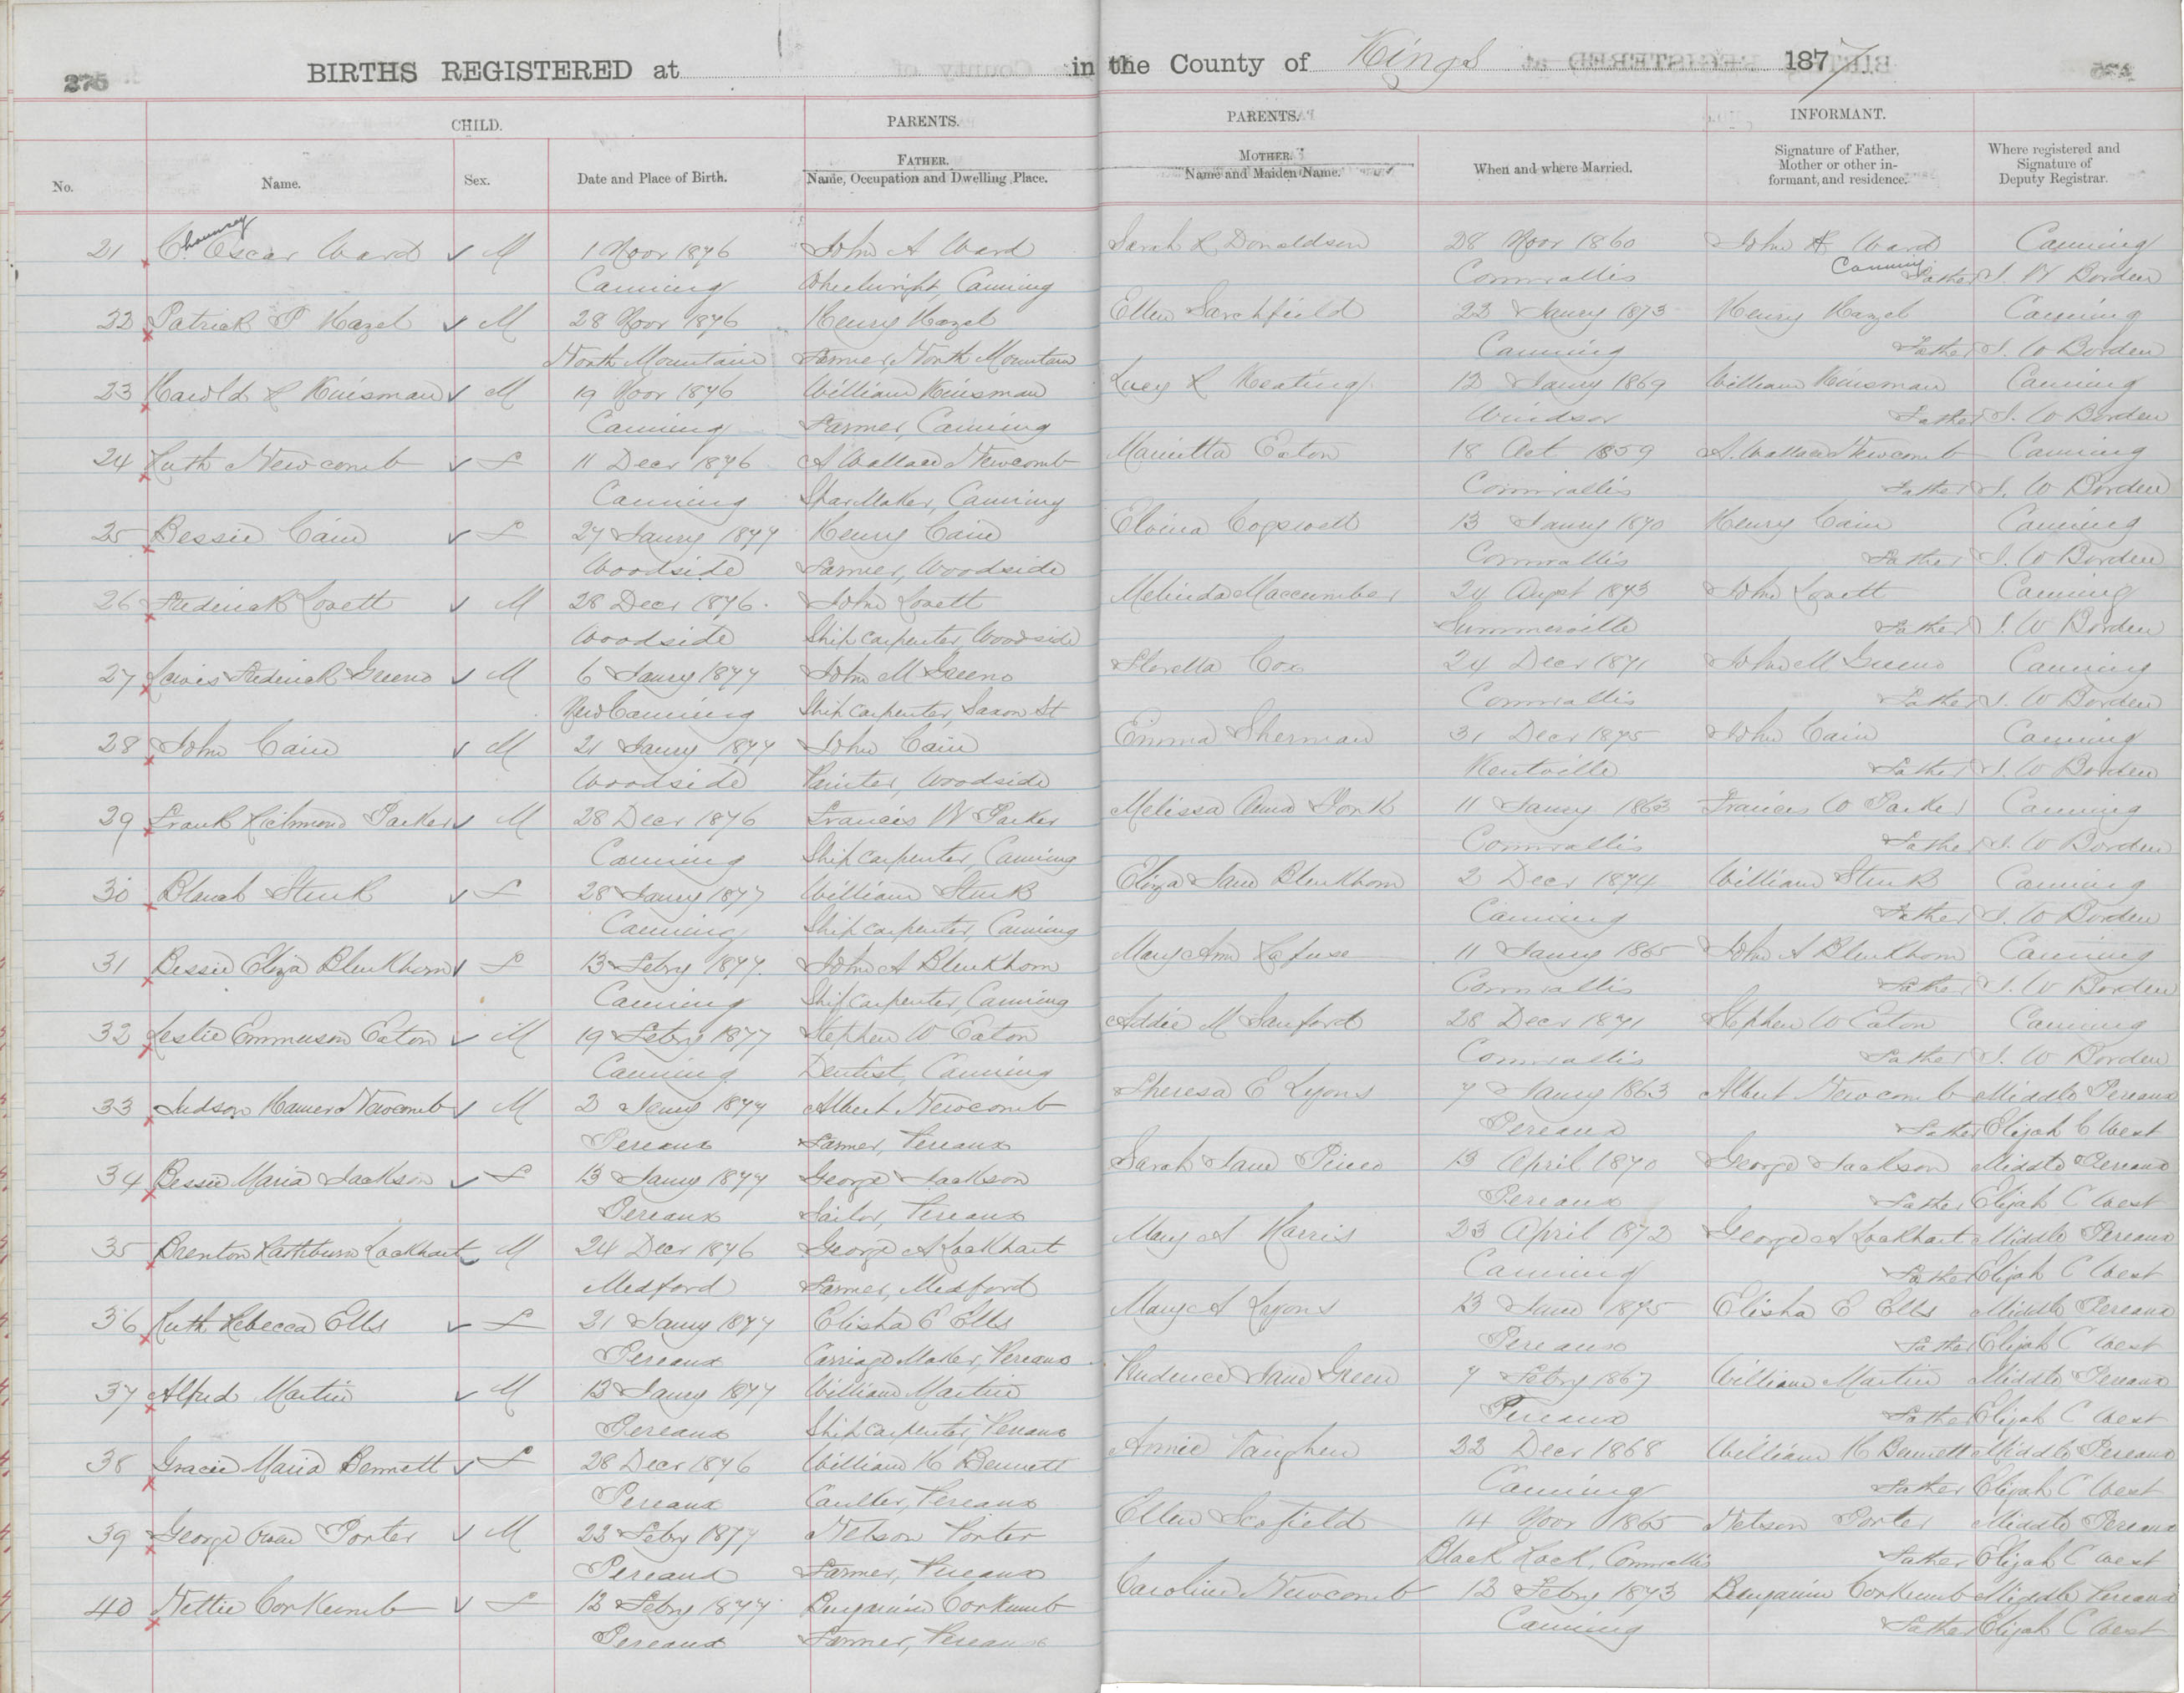 275
BIRTHS REGISTERED at in the County of Kings 1877
CHILD. PARENTS. PARENTS. INFORMANT.
No. Name. Sex. Date and Place of Birth. FATHER. Name, Occupation and Dwelling Place. MOTHER. Name and Maiden Name. When and where Married. Signature of Father, Mother or other informant, and residence. Where registered and Signature of Deputy Registrar.
Chauncey
21 C. Oscar Ward M 1 Novr 1876 John A Ward Sarah R Donaldson 28 Novr 1860 John A Ward Canning
Canning Wheelwright, Canning Cornwallis Canning Father J. W Borden
22 Patrick P Hazel M 28 Novr 1876 Henry Hazel Ellen Sarchfield 23 Janry 1873 Henry Hazel Canning
North Mountain Farmer, North Mountain Canning Father J. W Borden
23 Harold L Kinsman M 19 Novr 1876 William Kinsman Lucy R Keating 12 Janry 1869 William Kinsman Canning
Canning Farmer, Canning Windsor Father J. W Borden
24 Ruth Newcomb F 11 Decr 1876 A Wallace Newcomb Marietta Eaton 18 Oct 1859 A. Wallace Newcomb Canning
Canning Spar Maker, Canning Cornwallis Father J. W Borden
25 Bessie Cain F 27 Janry 1877 Henry Cain Elvina Cogswell 13 Janry 1870 Henry Cain Canning
Woodside Farmer, Woodside Cornwallis Father J. W Borden
26 Frederick Lovett M 28 Decr 1876. John Lovett Melinda Maccumber 24 Augst 1873 John Lovett Canning
Woodside Ship carpenter, Woodside Summerville Father J. W Borden
27 Lewis Frederick Greeno M 6 Janry 1877 John M Greeno Floretta Cox 24 Decr 1871 John M Greeno Canning
New Canning Ship carpenter, Saxon St Cornwallis Father J. W Borden
28 John Cain M 21 Janry 1877 John Cain Emma Sherman 31 Decr 1875 John Cain Canning
Woodside Painter, Woodside Kentville Father J. W Borden
29 Frank Richmond Parker M 28 Decr 1876 Francis W Parker Melissa Anna York 11 Janry 1863 Francis W Parker Canning
Canning Ship carpenter, Canning Cornwallis Father J. W Borden
30 Blanch Steuk F 28 Janry 1877 William Steuk Eliza Jane Blenkhorn 2 Decr 1874 William Steuk Canning
Canning Ship carpenter, Canning Canning Father J. W Borden
31 Bessie Eliza Blenkhorn F 13 Febry 1877. John A Blenkhorn Mary Ann Rafuse 11 Janry 1865 John A Blenkhorn Canning
Canning Ship carpenter, Canning Cornwallis Father J. W Borden
32 Leslie Emmerson Eaton M 19 Febry 1877 Stephen W Eaton Addie M Sanford 28 Decr 1871 Stephen W Eaton Canning
Canning Dentist, Canning Cornwallis Father J. W Borden
33 Judson Hamer Newcomb M 2 Janry 1877 Albert Newcomb Theresa E Lyons 7 Janry 1863 Albert Newcomb Middle Pereaux
Pereaux Farmer, Pereaux Pereaux Father Elijah C West
34 Bessie Maria Jackson F 13 Janry 1877 George Jackson Sarah Jane Pineo 13 April 1870 George Jackson Middle Pereaux
Pereaux Sailor, Pereaux Pereaux Father Elijah C West
35 Brenton Rathburn Lockhart M 24 Decr 1876 George A Lockhart Mary A Harris 23 April 1872 George A Lockhart Middle Pereaux
Medford Farmer, Medford Canning Father Elijah C West
36 Ruth Rebecca Ells F 21 Janry 1877 Elisha E Ells Mary A Lyons 13 June 1875 Elisha E Ells Middle Pereaux
Pereaux Carriage Maker, Pereaux Pereaux Father Elijah C West
37 Alfred Martin M 13 Janry 1877 William Martin Prudence Jane Green 7 Febry 1867 William Martin Middle Pereaux
Pereaux Ship carpenter, Pereaux Pereaux Father Elijah C West
38 Gracie Maria Bennett F 28 Decr 1876 William H Bennett Annie Vaughen 22 Decr 1868 William H Bennett Middle Pereaux
Pereaux Caulker, Pereaux Canning Father Elijah C West
39 George Porter M 23 Febry 1877 Nelson Porter Ellen Scofield 14 Novr 1865 Nelson Porter Middle Pereaux
Pereaux Farmer, Pereaux Black Rock, Cornwallis Father Elijah C West
40 Nettie Corkumb F 12 Febry 1877. Benjamin Corkumb Caroline Newcomb 12 Febry 1873 Benjamin Corkumb Middle Pereaux
Pereaux Farmer, Pereaux Canning Father Elijah C West